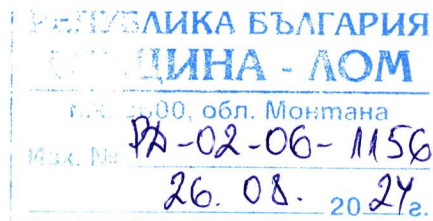 РЕПУБЛИКА БЪЛГАРИЯ
ОБЩИНА - ЛОМ
п.к. 3600, обл. Монтана
Изх. № РД-02-06-1156
26. 08. 2024 г.